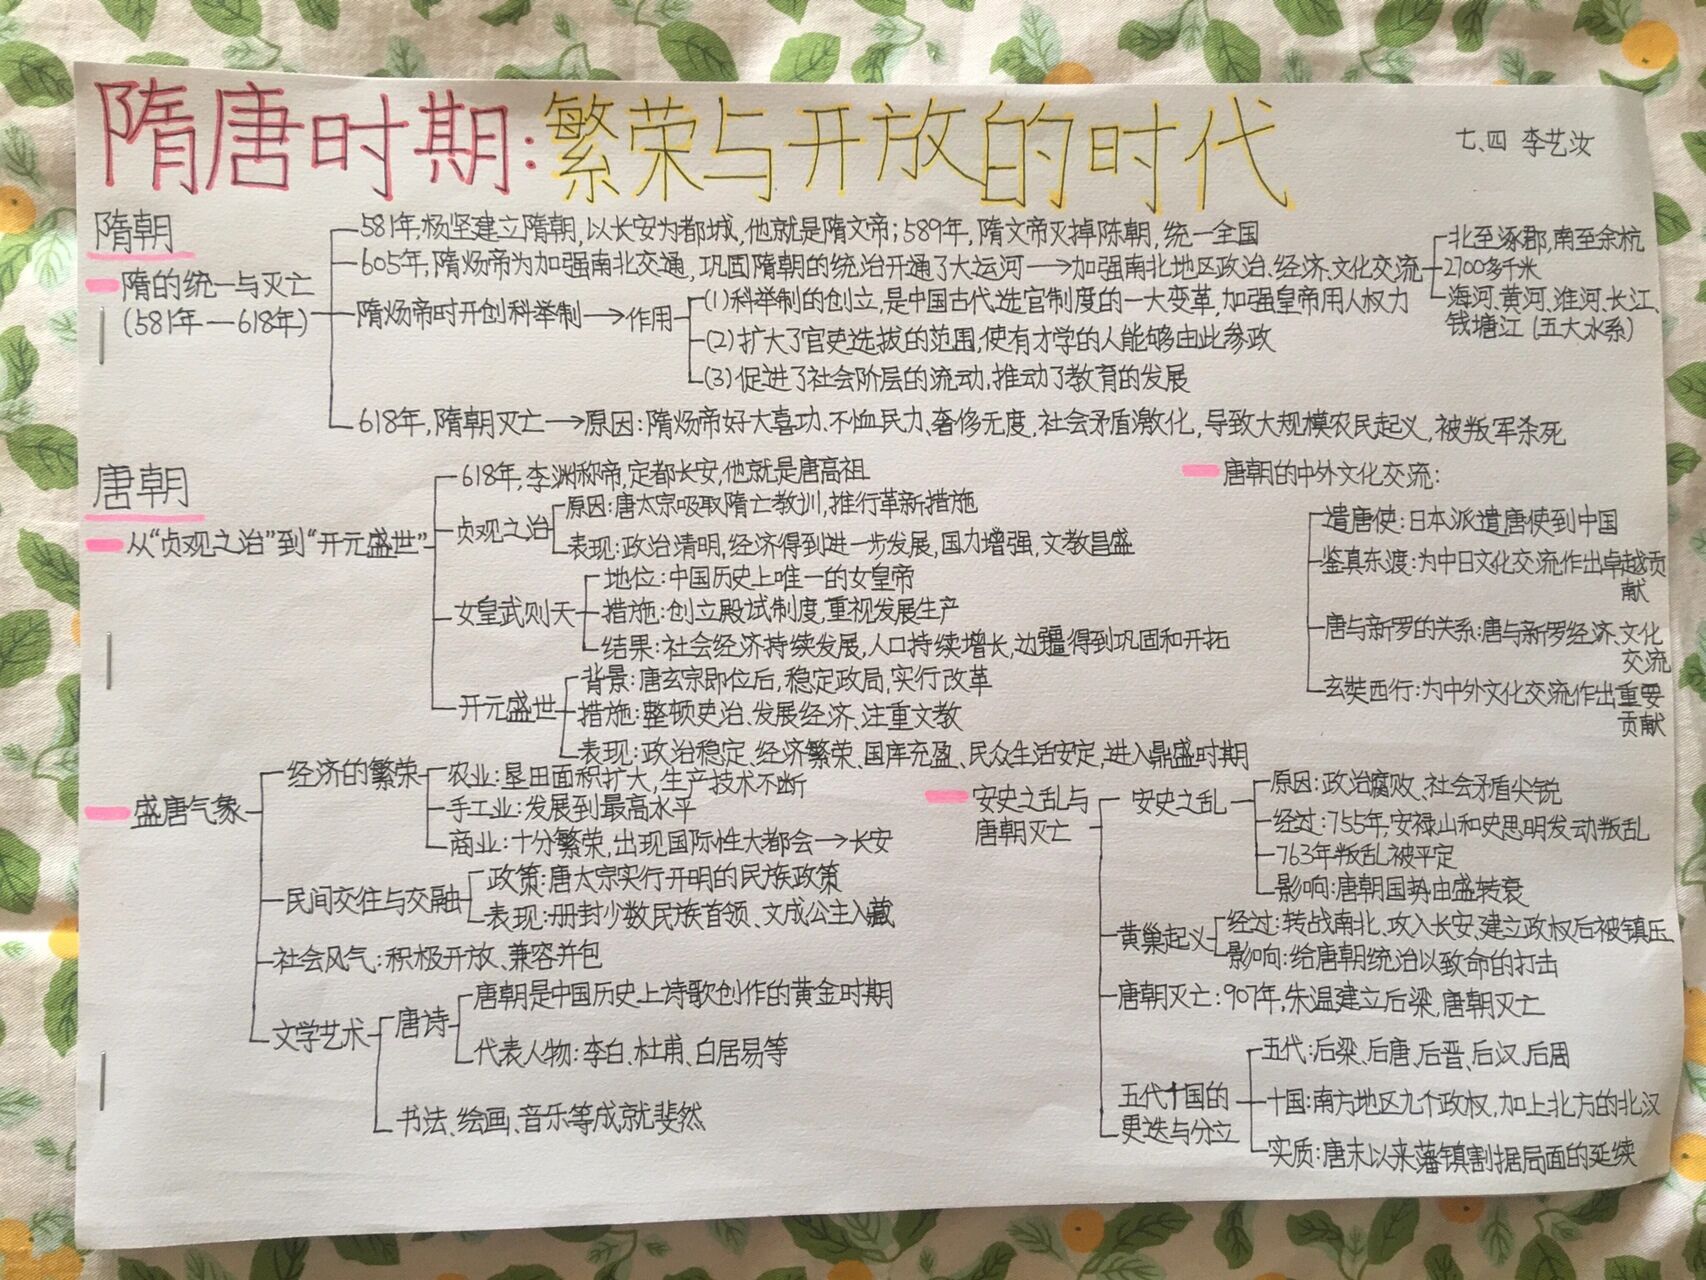 隋唐时期:繁荣与开放的时代
七、四 李艺汝
隋朝
隋的统一与灭亡
(581年—618年)
581年,杨坚建立隋朝,以长安为都城,他就是隋文帝;589年,隋文帝灭掉陈朝,统一全国
605年,隋炀帝为加强南北交通,巩固隋朝的统治开通了大运河→加强南北地区政治、经济、文化交流
北至涿郡,南至余杭
2700多千米
海河、黄河、淮河、长江、
钱塘江(五大水系)
隋炀帝时开创科举制→作用
(1)科举制的创立,是中国古代选官制度的一大变革,加强皇帝用人权力
(2)扩大了官吏选拔的范围,使有才学的人能够由此参政
(3)促进了社会阶层的流动,推动了教育的发展
618年,隋朝灭亡→原因:隋炀帝好大喜功、不恤民力、奢侈无度,社会矛盾激化,导致大规模农民起义,被叛军杀死
唐朝
从“贞观之治”到“开元盛世”
618年,李渊称帝,定都长安,他就是唐高祖
贞观之治
原因:唐太宗吸取隋亡教训,推行革新措施
表现:政治清明,经济得到进一步发展,国力增强,文教昌盛
女皇武则天
地位:中国历史上唯一的女皇帝
措施:创立殿试制度,重视发展生产
结果:社会经济持续发展,人口持续增长,边疆得到巩固和开拓
开元盛世
背景:唐玄宗即位后,稳定政局,实行改革
措施:整顿吏治、发展经济、注重文教
表现:政治稳定、经济繁荣、国库充盈、民众生活安定,进入鼎盛时期
唐朝的中外文化交流:
遣唐使:日本派遣唐使到中国
鉴真东渡:为中日文化交流作出卓越贡
献
唐与新罗的关系:唐与新罗经济、文化
交流
玄奘西行:为中外文化交流作出重要
贡献
盛唐气象
经济的繁荣
农业:垦田面积扩大,生产技术不断
手工业:发展到最高水平
商业:十分繁荣,出现国际性大都会→长安
民间交往与交融
政策:唐太宗实行开明的民族政策
表现:册封少数民族首领、文成公主入藏
社会风气:积极开放、兼容并包
文学艺术
唐诗
唐朝是中国历史上诗歌创作的黄金时期
代表人物:李白、杜甫、白居易等
书法、绘画、音乐等成就斐然
安史之乱与
唐朝灭亡
安史之乱
原因:政治腐败、社会矛盾尖锐
经过:755年,安禄山和史思明发动叛乱
763年叛乱被平定
影响:唐朝国势由盛转衰
黄巢起义
经过:转战南北,攻入长安,建立政权后被镇压
影响:给唐朝统治以致命的打击
唐朝灭亡:907年,朱温建立后梁,唐朝灭亡
五代十国的
更迭与分立
五代:后梁、后唐、后晋、后汉、后周
十国:南方地区九个政权,加上北方的北汉
实质:唐末以来藩镇割据局面的延续